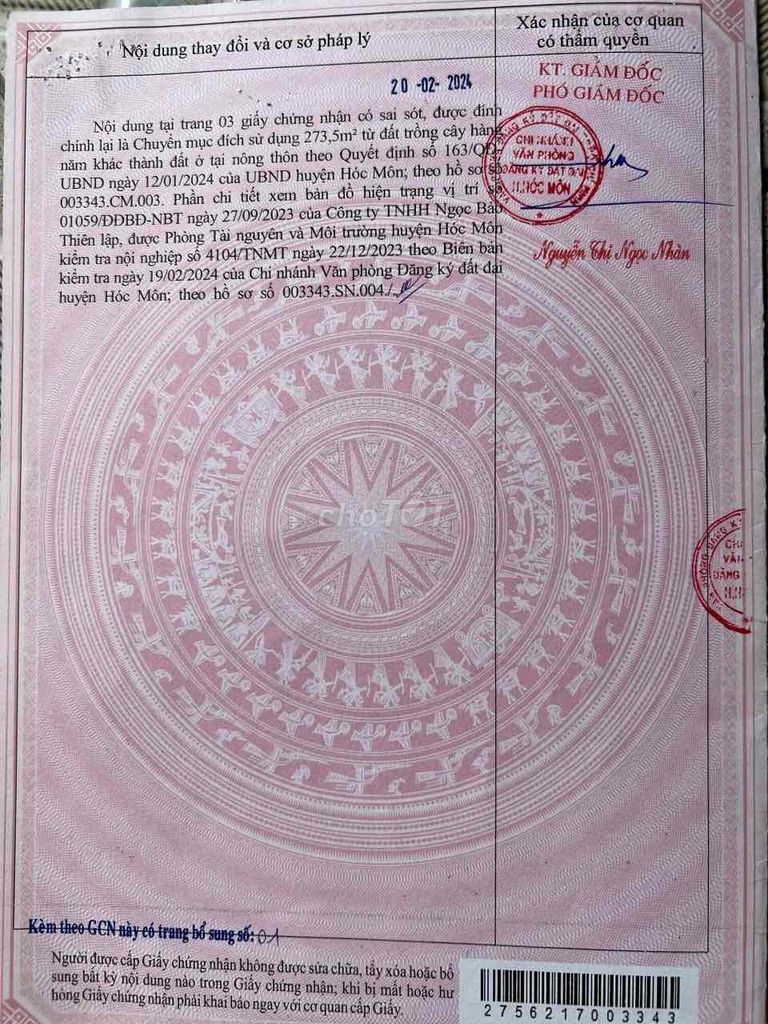 Nội dung thay đổi và cơ sở pháp lý
Xác nhận của cơ quan
có thẩm quyền
20 -02- 2024
Nội dung tại trang 03 giấy chứng nhận có sai sót, được đính
chính lại là Chuyển mục đích sử dụng 273,5m² từ đất trồng cây hàng
năm khác thành đất ở tại nông thôn theo Quyết định số 163/QĐ-
UBND ngày 12/01/2024 của UBND huyện Hóc Môn; theo hồ sơ số
003343.CM.003. Phần chi tiết xem bản đồ hiện trạng vị trí số
01059/ĐĐBĐ-NBT ngày 27/09/2023 của Công ty TNHH Ngọc Bảo
Thiên lập, được Phòng Tài nguyên và Môi trường huyện Hóc Môn
kiểm tra nội nghiệp số 4104/TNMT ngày 22/12/2023 theo Biên bản
kiểm tra ngày 19/02/2024 của Chi nhánh Văn phòng Đăng ký đất đai
huyện Hóc Môn; theo hồ sơ số 003343.SN.004./.
KT. GIÁM ĐỐC
PHÓ GIÁM ĐỐC
CHI NHÁNH
VĂN PHÒNG
ĐĂNG KÝ ĐẤT ĐAI
H.HÓC MÔN
Nguyễn Thị Ngọc Nhàn
choTỐT
Kèm theo GCN này có trang bổ sung số: 01
Người được cấp Giấy chứng nhận không được sửa chữa, tẩy xóa hoặc bổ
sung bất kỳ nội dung nào trong Giấy chứng nhận; khi bị mất hoặc hư
hỏng Giấy chứng nhận phải khai báo ngay với cơ quan cấp Giấy.
2756217003343